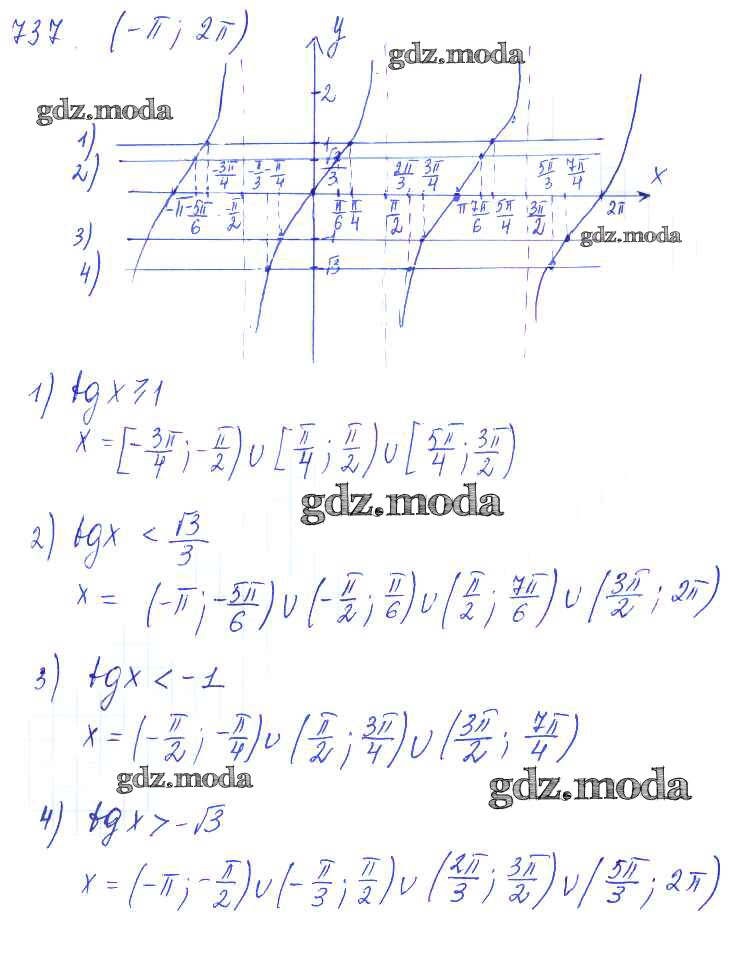 737. (-π; 2π)
y
gdz.moda
2
gdz.moda
1) 1
2) √3/3
-3π/4 -π/3 -π/4 2π/3 3π/4 5π/3 7π/4 x
-π -5π/6 -π/2 π/6 π/4 π/2 π 7π/6 5π/4 3π/2 2π
3) -1
gdz.moda
4) √3
1) tg x ⩾ 1
x = [-3π/4; -π/2) ∪ [π/4; π/2) ∪ [5π/4; 3π/2)
gdz.moda
2) tgx < √3/3
x = (-π; -5π/6) ∪ (-π/2; π/6) ∪ (π/2; 7π/6) ∪ (3π/2; 2π)
3) tgx < -1
x = (-π/2; -π/4) ∪ (π/2; 3π/4) ∪ (3π/2; 7π/4)
gdz.moda
gdz.moda
4) tgx > -√3
x = (-π; -π/2) ∪ (-π/3; π/2) ∪ (2π/3; 3π/2) ∪ (5π/3; 2π)